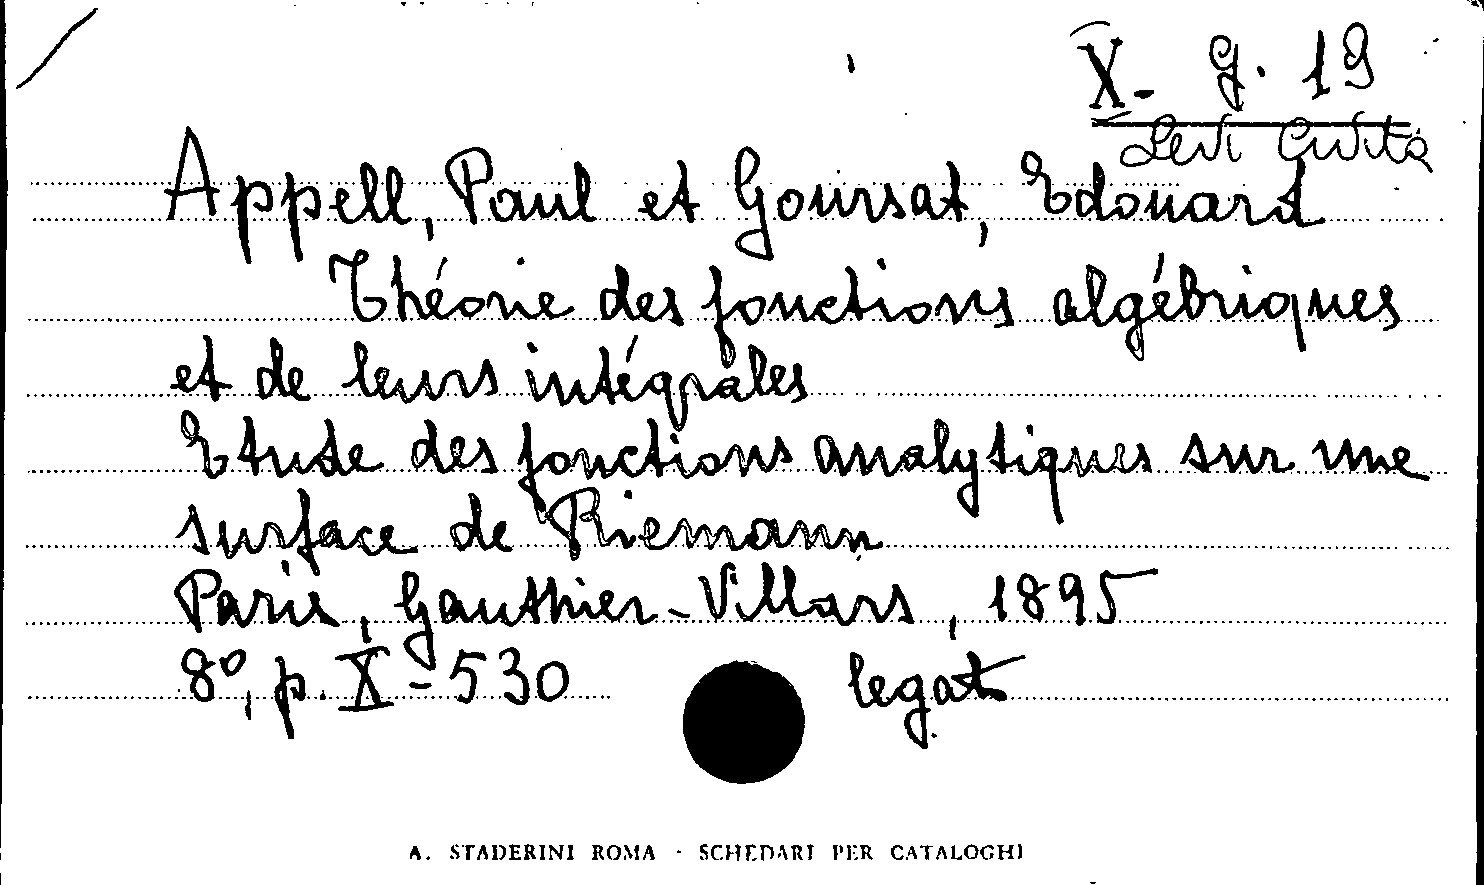 X- G. 19
Levi Civita
Appell, Paul et Goursat, Edouard
Théorie des fonctions algébriques
et de leurs intégrales
Etude des fonctions analytiques sur une
surface de Riemann
Paris, Gauthier-Villars, 1895
8º, p. X-530 legat
A. STADERINI ROMA - SCHEDARI PER CATALOGHI